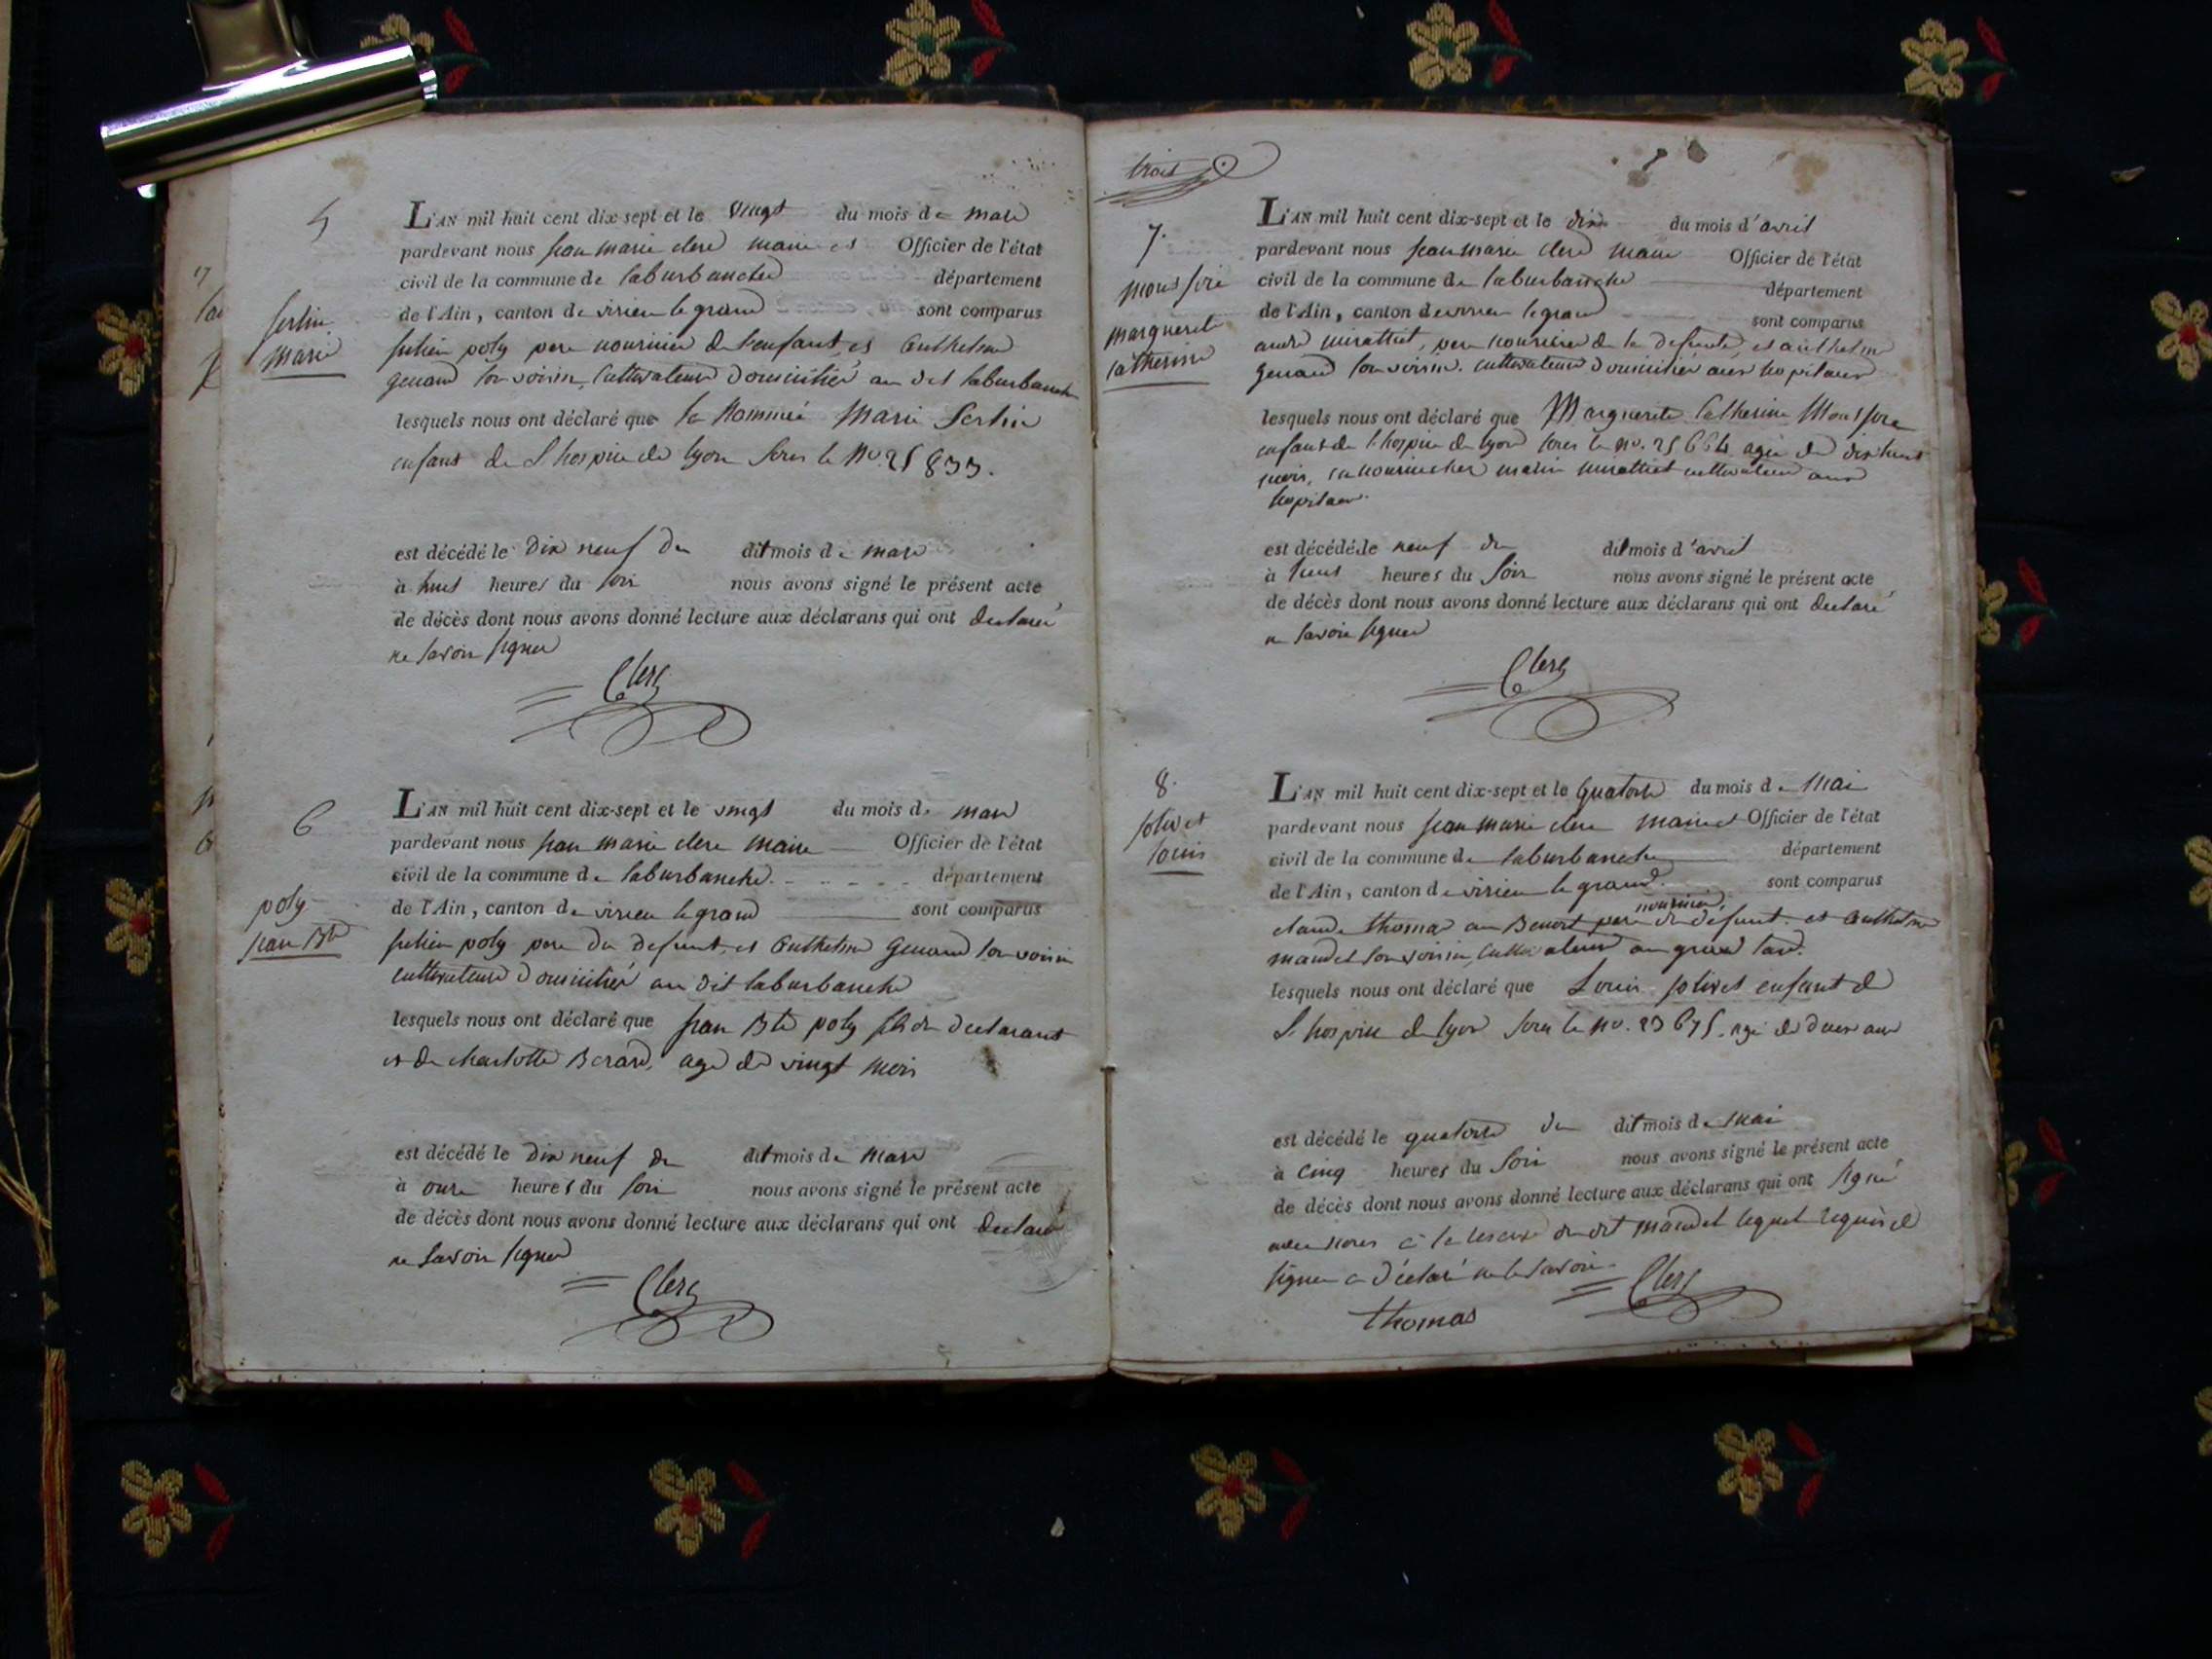 5
Sertin
Marie
L'AN mil huit cent dix-sept et le vingt du mois de mars
pardevant nous jean marie clerc maire et Officier de l'état
civil de la commune de laburbanche département
de l'Ain, canton de virieu le grand sont comparus
julien poly pere nouricier de l'enfant, et Anthelme
genand son voisin, cultivateurs domicilié au dit laburbanche
lesquels nous ont déclaré que la Nommée Marie Sertin
enfant de L'hospice de lyon sous le No. 25833.
est décédé le dix neuf du dit mois de mars
à huit heures du soir nous avons signé le présent acte
de décès dont nous avons donné lecture aux déclarans qui ont declaré
ne savoir signer
Clerc
6
poly
jean Bte
L'AN mil huit cent dix-sept et le vingt du mois de mars
pardevant nous jean marie clerc maire Officier de l'état
civil de la commune de laburbanche. département
de l'Ain, canton de virieu le grand sont comparus
julien poly pere du defunt, et Anthelme Genand son voisin
cultivateurs domicilié au dit laburbanche
lesquels nous ont déclaré que jean Bte poly fils du declarant
et de charlotte Berard, agé de vingt mois
est décédé le dix neuf du dit mois de mars
à onze heures du soir nous avons signé le présent acte
de décès dont nous avons donné lecture aux déclarans qui ont declaré
ne savoir signer
Clerc
trois
7.
Marguerite
catherine
L'AN mil huit cent dix-sept et le dix du mois d'avril
pardevant nous jean marie clerc maire Officier de l'état
civil de la commune de laburbanche département
de l'Ain, canton de virieu le grand sont comparus
andré mirattiet, pere nouricier de la defunte, et anthelme
genand son voisin. cultivateurs domicilié aux hopitaux
lesquels nous ont déclaré que Marguerite Catherine
enfant de l'hospice de lyon sous le no. 25664 agée de dix huit
mois, en nourrice chez mirattiet cultivateur aux
hopitaux.
est décédé le neuf du dit mois d'avril
à huit heures du soir nous avons signé le présent acte
de décès dont nous avons donné lecture aux déclarans qui ont declaré
ne savoir signer
Clerc
8.
jolivet
louis
L'AN mil huit cent dix-sept et le quatorze du mois de Mai
pardevant nous jean marie clerc maire et Officier de l'état
civil de la commune de laburbanche département
de l'Ain, canton de virieu le grand. sont comparus
nouricier
claude thomas au Benoit pere du defunt. et Anthelme
mandet son voisin, cultivateurs
lesquels nous ont déclaré que Louis jolivet enfant de
L'hospice de lyon sous le no. 23675. agé de deux ans
est décédé le quatorze du dit mois de mai
à cinq heures du soir nous avons signé le présent acte
de décès dont nous avons donné lecture aux déclarans qui ont signé
avec nous à la reserve du dit mandet lequel requis de
signer a déclaré ne le savoir.
Clerc
thomas